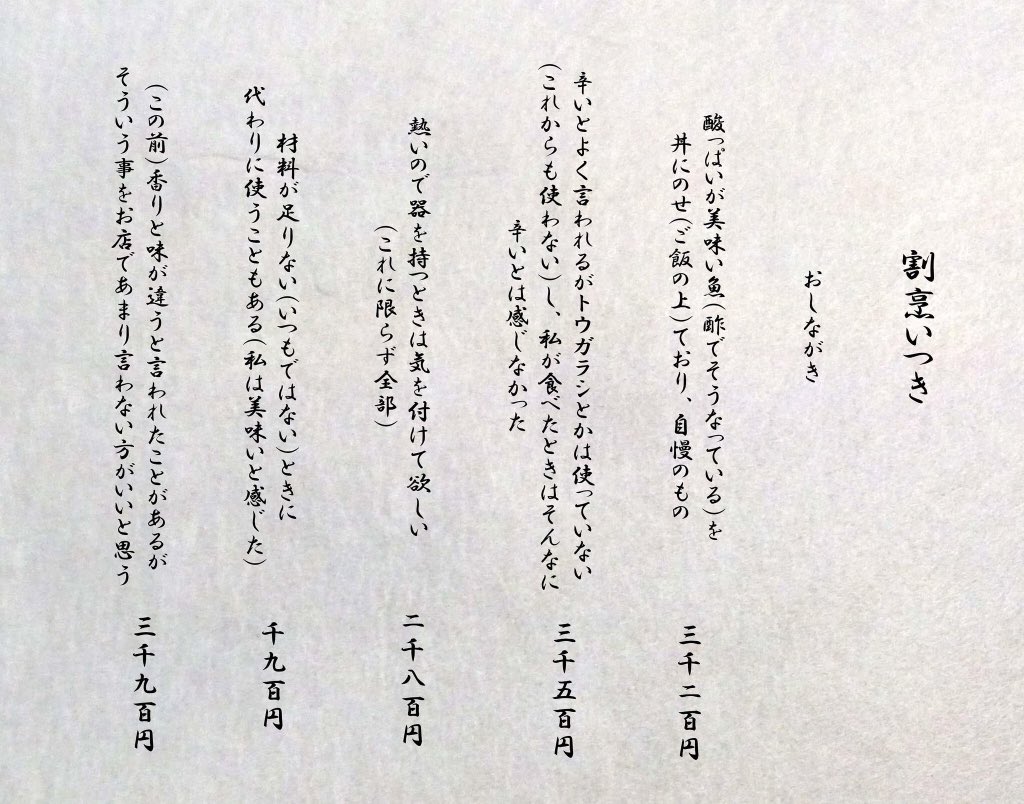 割烹いつき
おしながき
酸っぱいが美味い魚(酢でそうなっている)を
丼にのせ(ご飯の上)ており、自慢のもの
三千二百円
辛いとよく言われるがトウガラシとかは使っていない
(これからも使わない)し、私が食べたときはそんなに
辛いとは感じなかった
三千五百円
熱いので器を持つときは気を付けて欲しい
(これに限らず全部)
二千八百円
材料が足りない(いつもではない)ときに
代わりに使うこともある(私は美味いと感じた)
千九百円
(この前)香りと味が違うと言われたことがあるが
そういう事をお店であまり言わない方がいいと思う
三千九百円